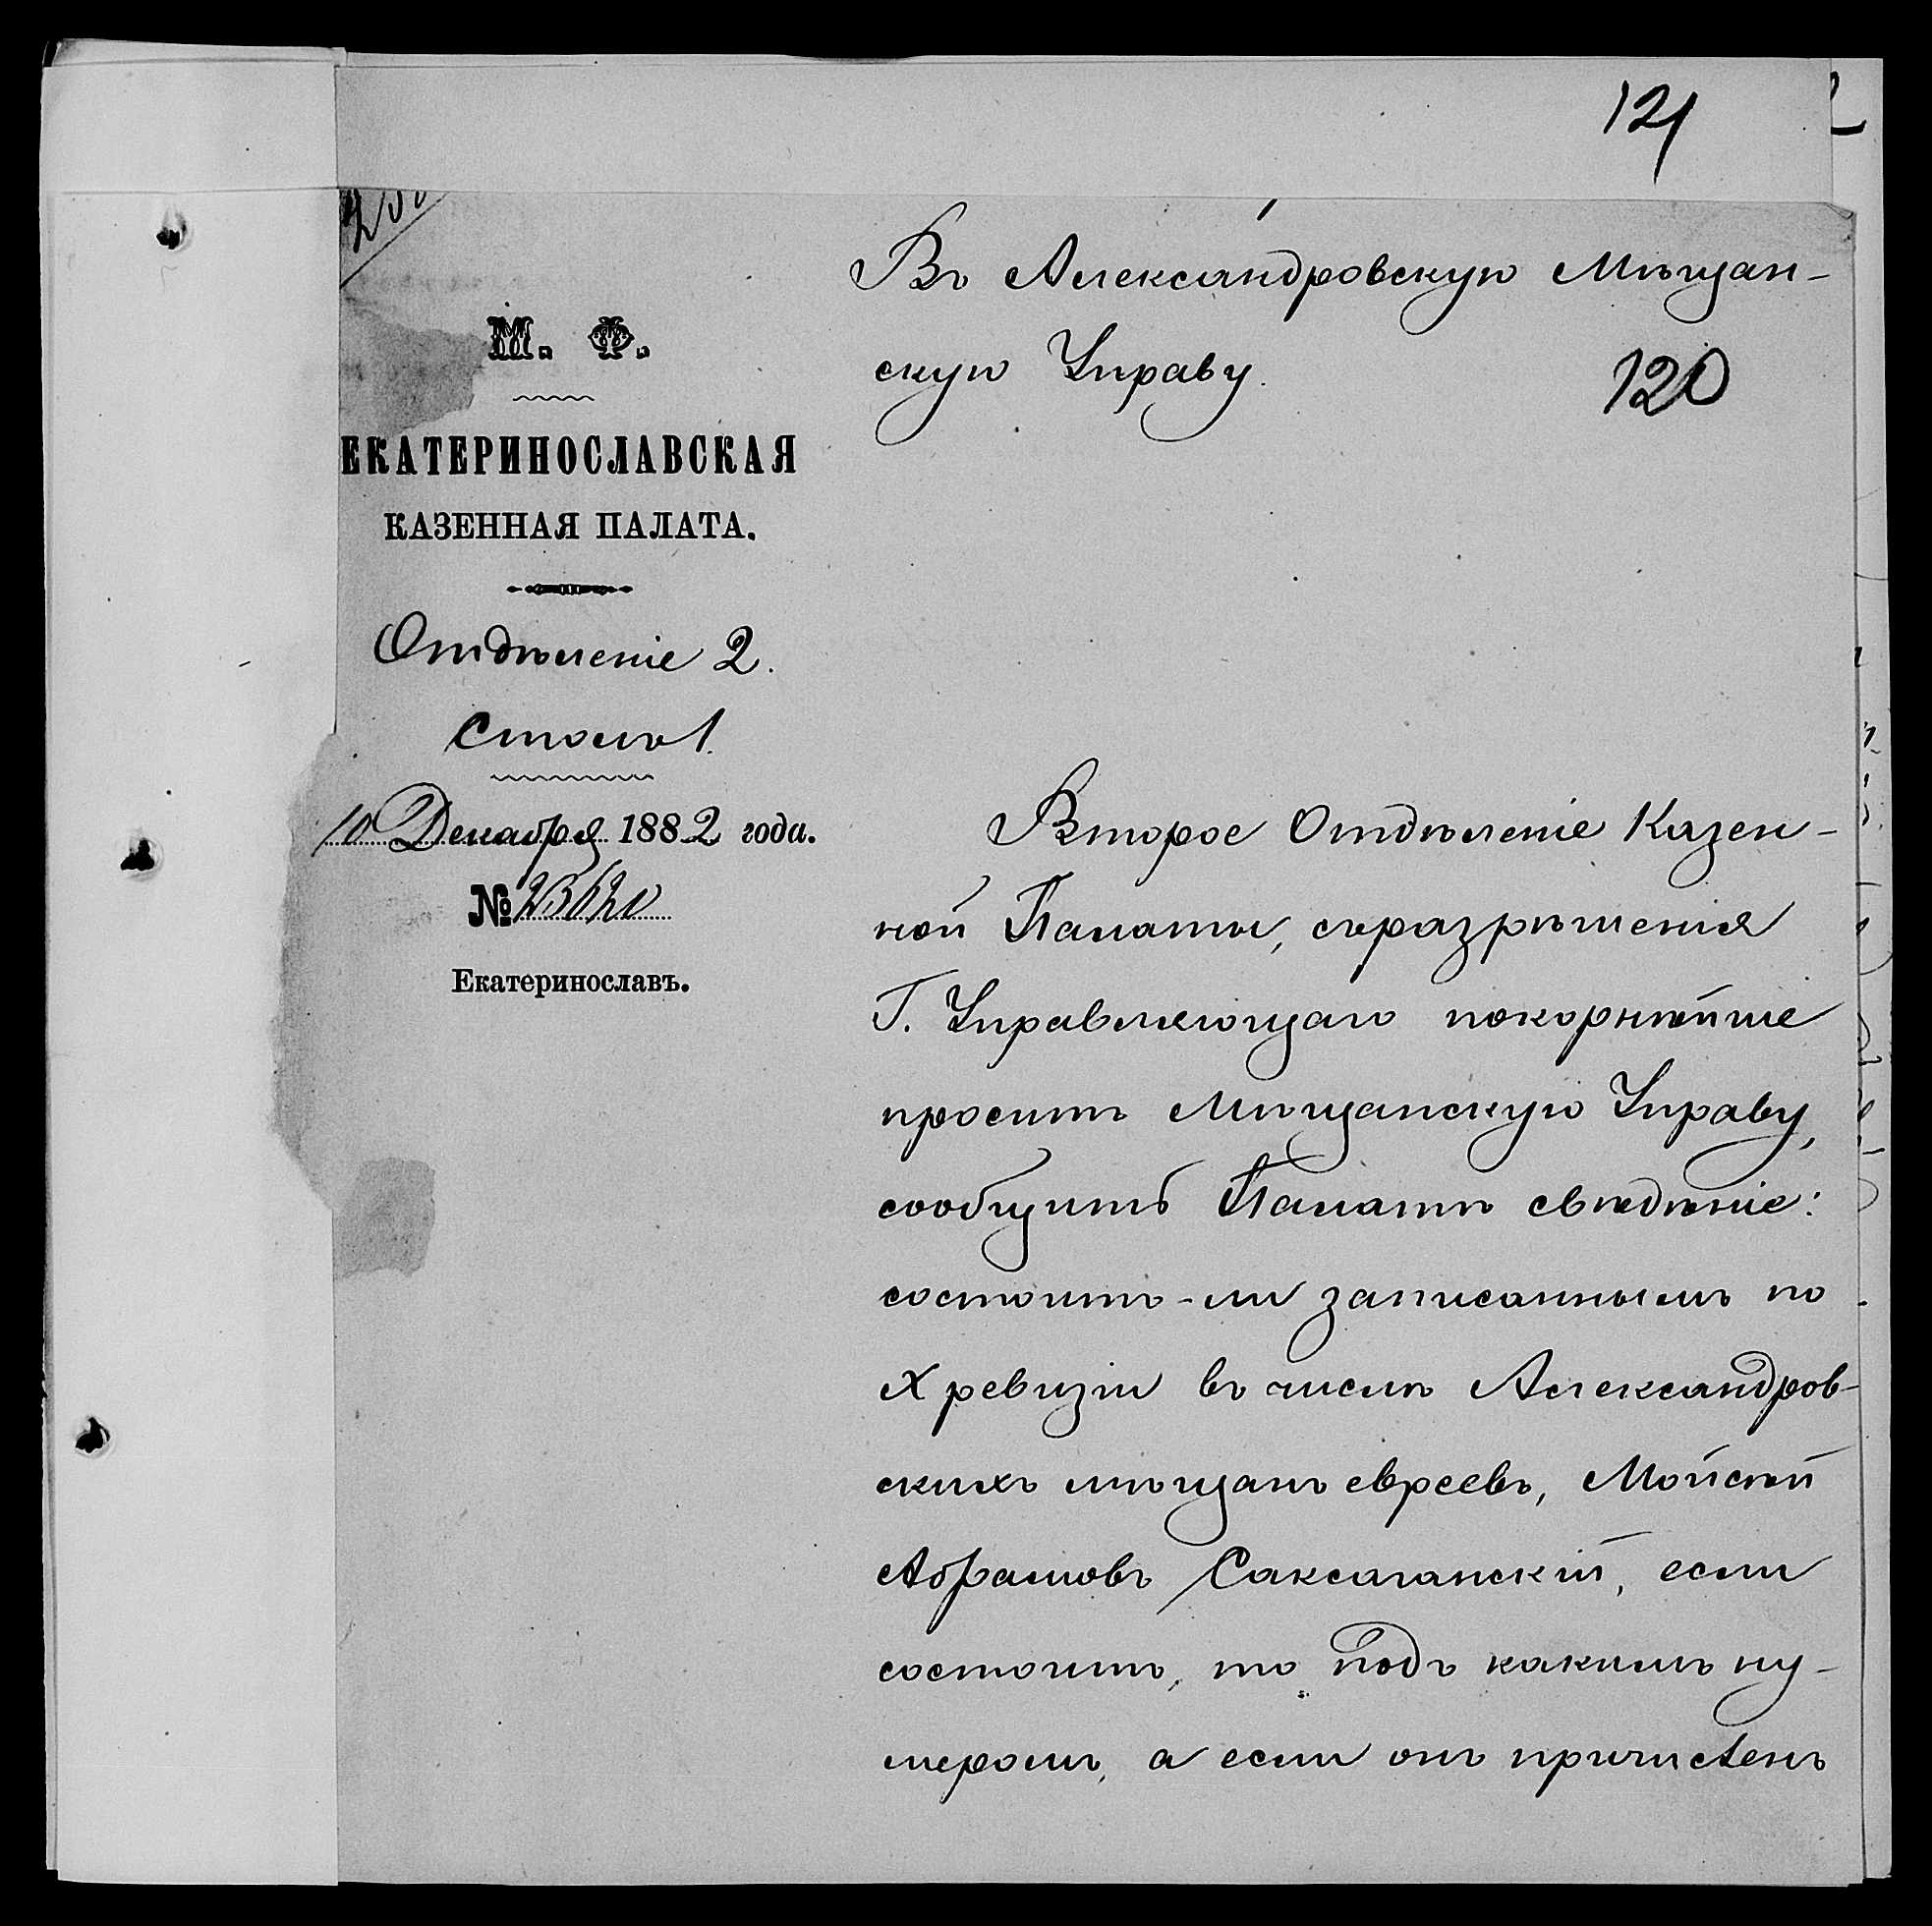 121
120
М. Ф.
ЕКАТЕРИНОСЛАВСКАЯ
КАЗЕННАЯ ПАЛАТА.
Отдѣленіе 2.
Столъ 1.
10 Декабря 1882 года.
№ 23620
Екатеринославъ.
Въ Александровскую Мѣщан-
скую Управу.
Второе Отдѣленіе Казен-
ной Палаты, съ разрѣшенія
Г. Управляющаго покорнѣйше
просить Мѣщанскую Управу,
сообщить Палатѣ свѣдѣніе:
состоитъ-ли записаннымъ по
X ревизіи въ числѣ Александров-
скихъ мѣщанъ евреевъ, Мойсѣй
Абрамовъ Саксаганскій, если
состоитъ, то подъ какимъ ну-
меромъ, а если онъ причисленъ